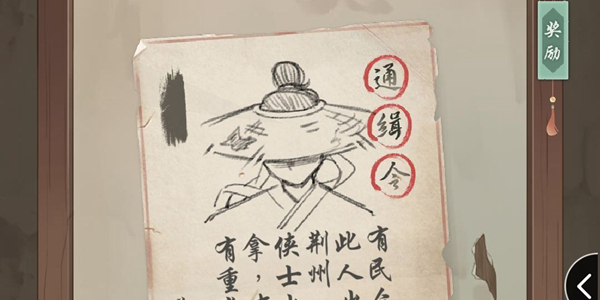 奖励
通缉令
有民
此人出
荆州
侠士
拿，
有重